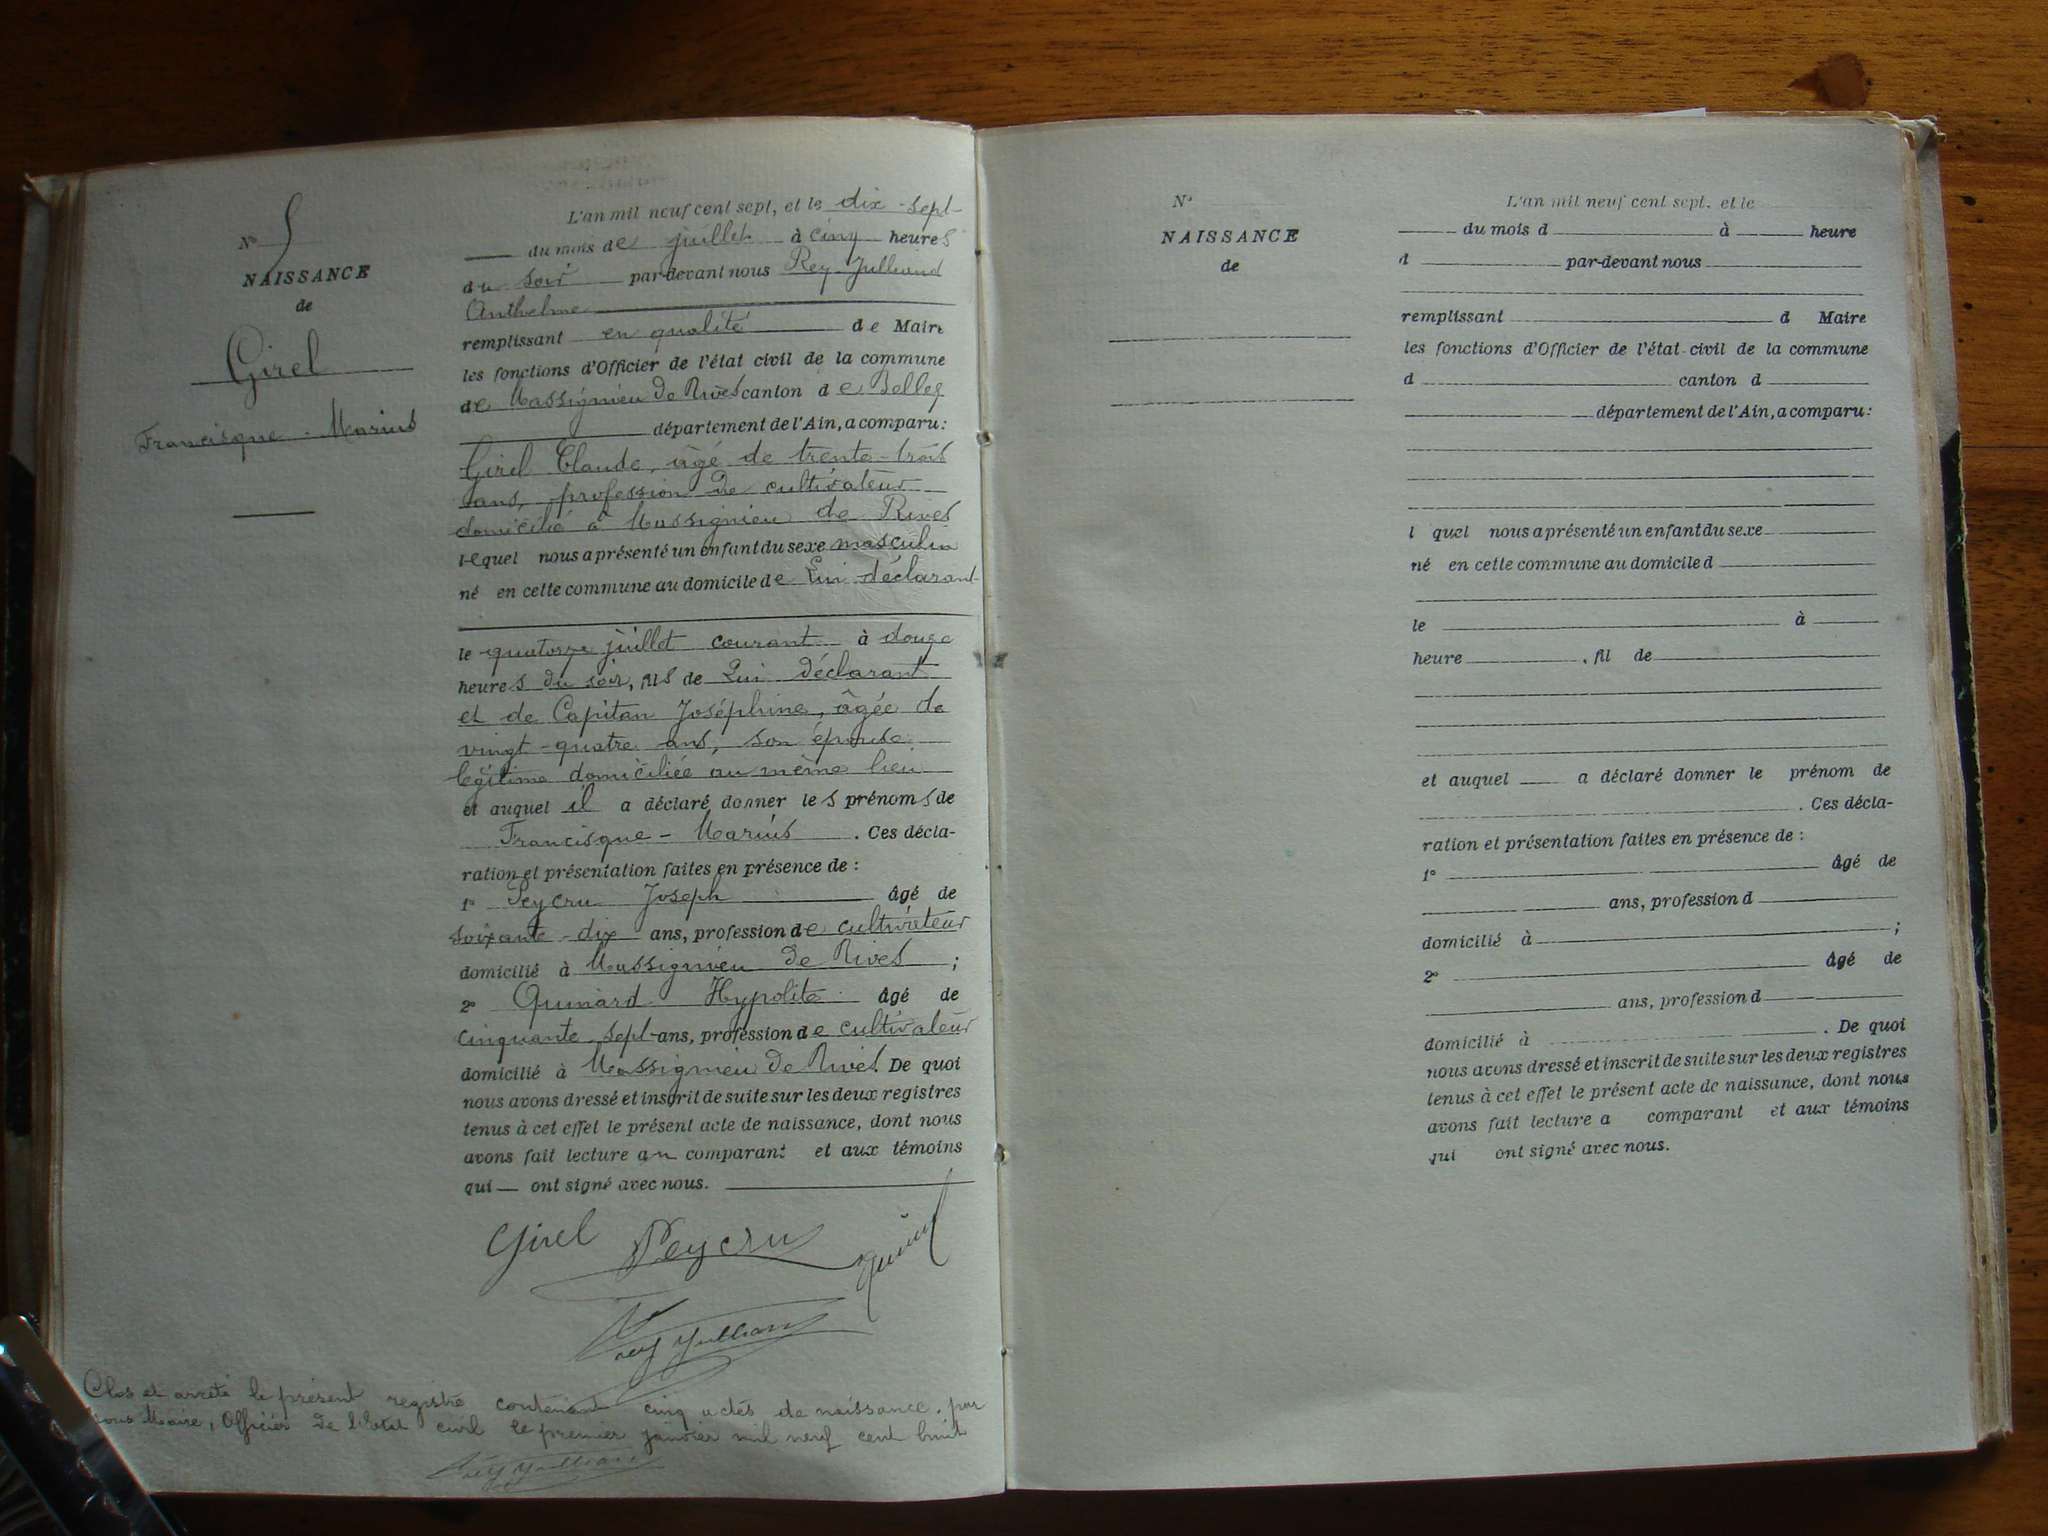 N° 5
NAISSANCE
de
Girel
Francisque-Marius
L'an mil neuf cent sept, et le dix-sept
du mois de juillet à cinq heures
du soir par-devant nous Rey-Julliand
Anthelme
remplissant en qualité de Maire
les fonctions d'Officier de l'état civil de la commune
de Massignieu de Rives canton de Belley
département de l'Ain, a comparu:
Girel Claude, âgé de trente-trois
ans, profession de cultivateur
domicilié à Massignieu de Rives
lequel nous a présenté un enfant du sexe masculin
né en cette commune au domicile de Lui déclarant
le quatorze juillet courant à douze
heures du soir, fils de Lui déclarant
et de Capitan Joséphine, âgée de
vingt-quatre ans, son épouse
légitime domiciliée au même lieu
et auquel il a déclaré donner les prénoms de
Francisque-Marius. Ces décla-
ration et présentation faites en présence de:
1° Peycru Joseph âgé de
soixante-dix ans, profession de cultivateur
domicilié à Massignieu de Rives;
2° Quinard Hypolite âgé de
cinquante sept ans, profession de cultivateur
domicilié à Massignieu de Rives. De quoi
nous avons dressé et inscrit de suite sur les deux registres
tenus à cet effet le présent acte de naissance, dont nous
avons fait lecture au comparant et aux témoins
qui ont signé avec nous.
Girel Peycru
Rey Jullian
Clos et arrêté le présent registre contenant cinq actes de naissance, par
nous Maire, Officier de l'état civil le premier janvier mil neuf cent huit
Rey Jullian
N°
NAISSANCE
de
L'an mil neuf cent sept, et le
du mois d à heure
d par-devant nous
remplissant d Maire
les fonctions d'Officier de l'état civil de la commune
d canton d
département de l'Ain, a comparu:
l quel nous a présenté un enfant du sexe
né en cette commune au domicile d
le à
heure , fil de
et auquel a déclaré donner le prénom de
. Ces décla-
ration et présentation faites en présence de:
1° âgé de
ans, profession d
domicilié à ;
2° âgé de
ans, profession d
domicilié à . De quoi
nous avons dressé et inscrit de suite sur les deux registres
tenus à cet effet le présent acte de naissance, dont nous
avons fait lecture a comparant et aux témoins
qui ont signé avec nous.